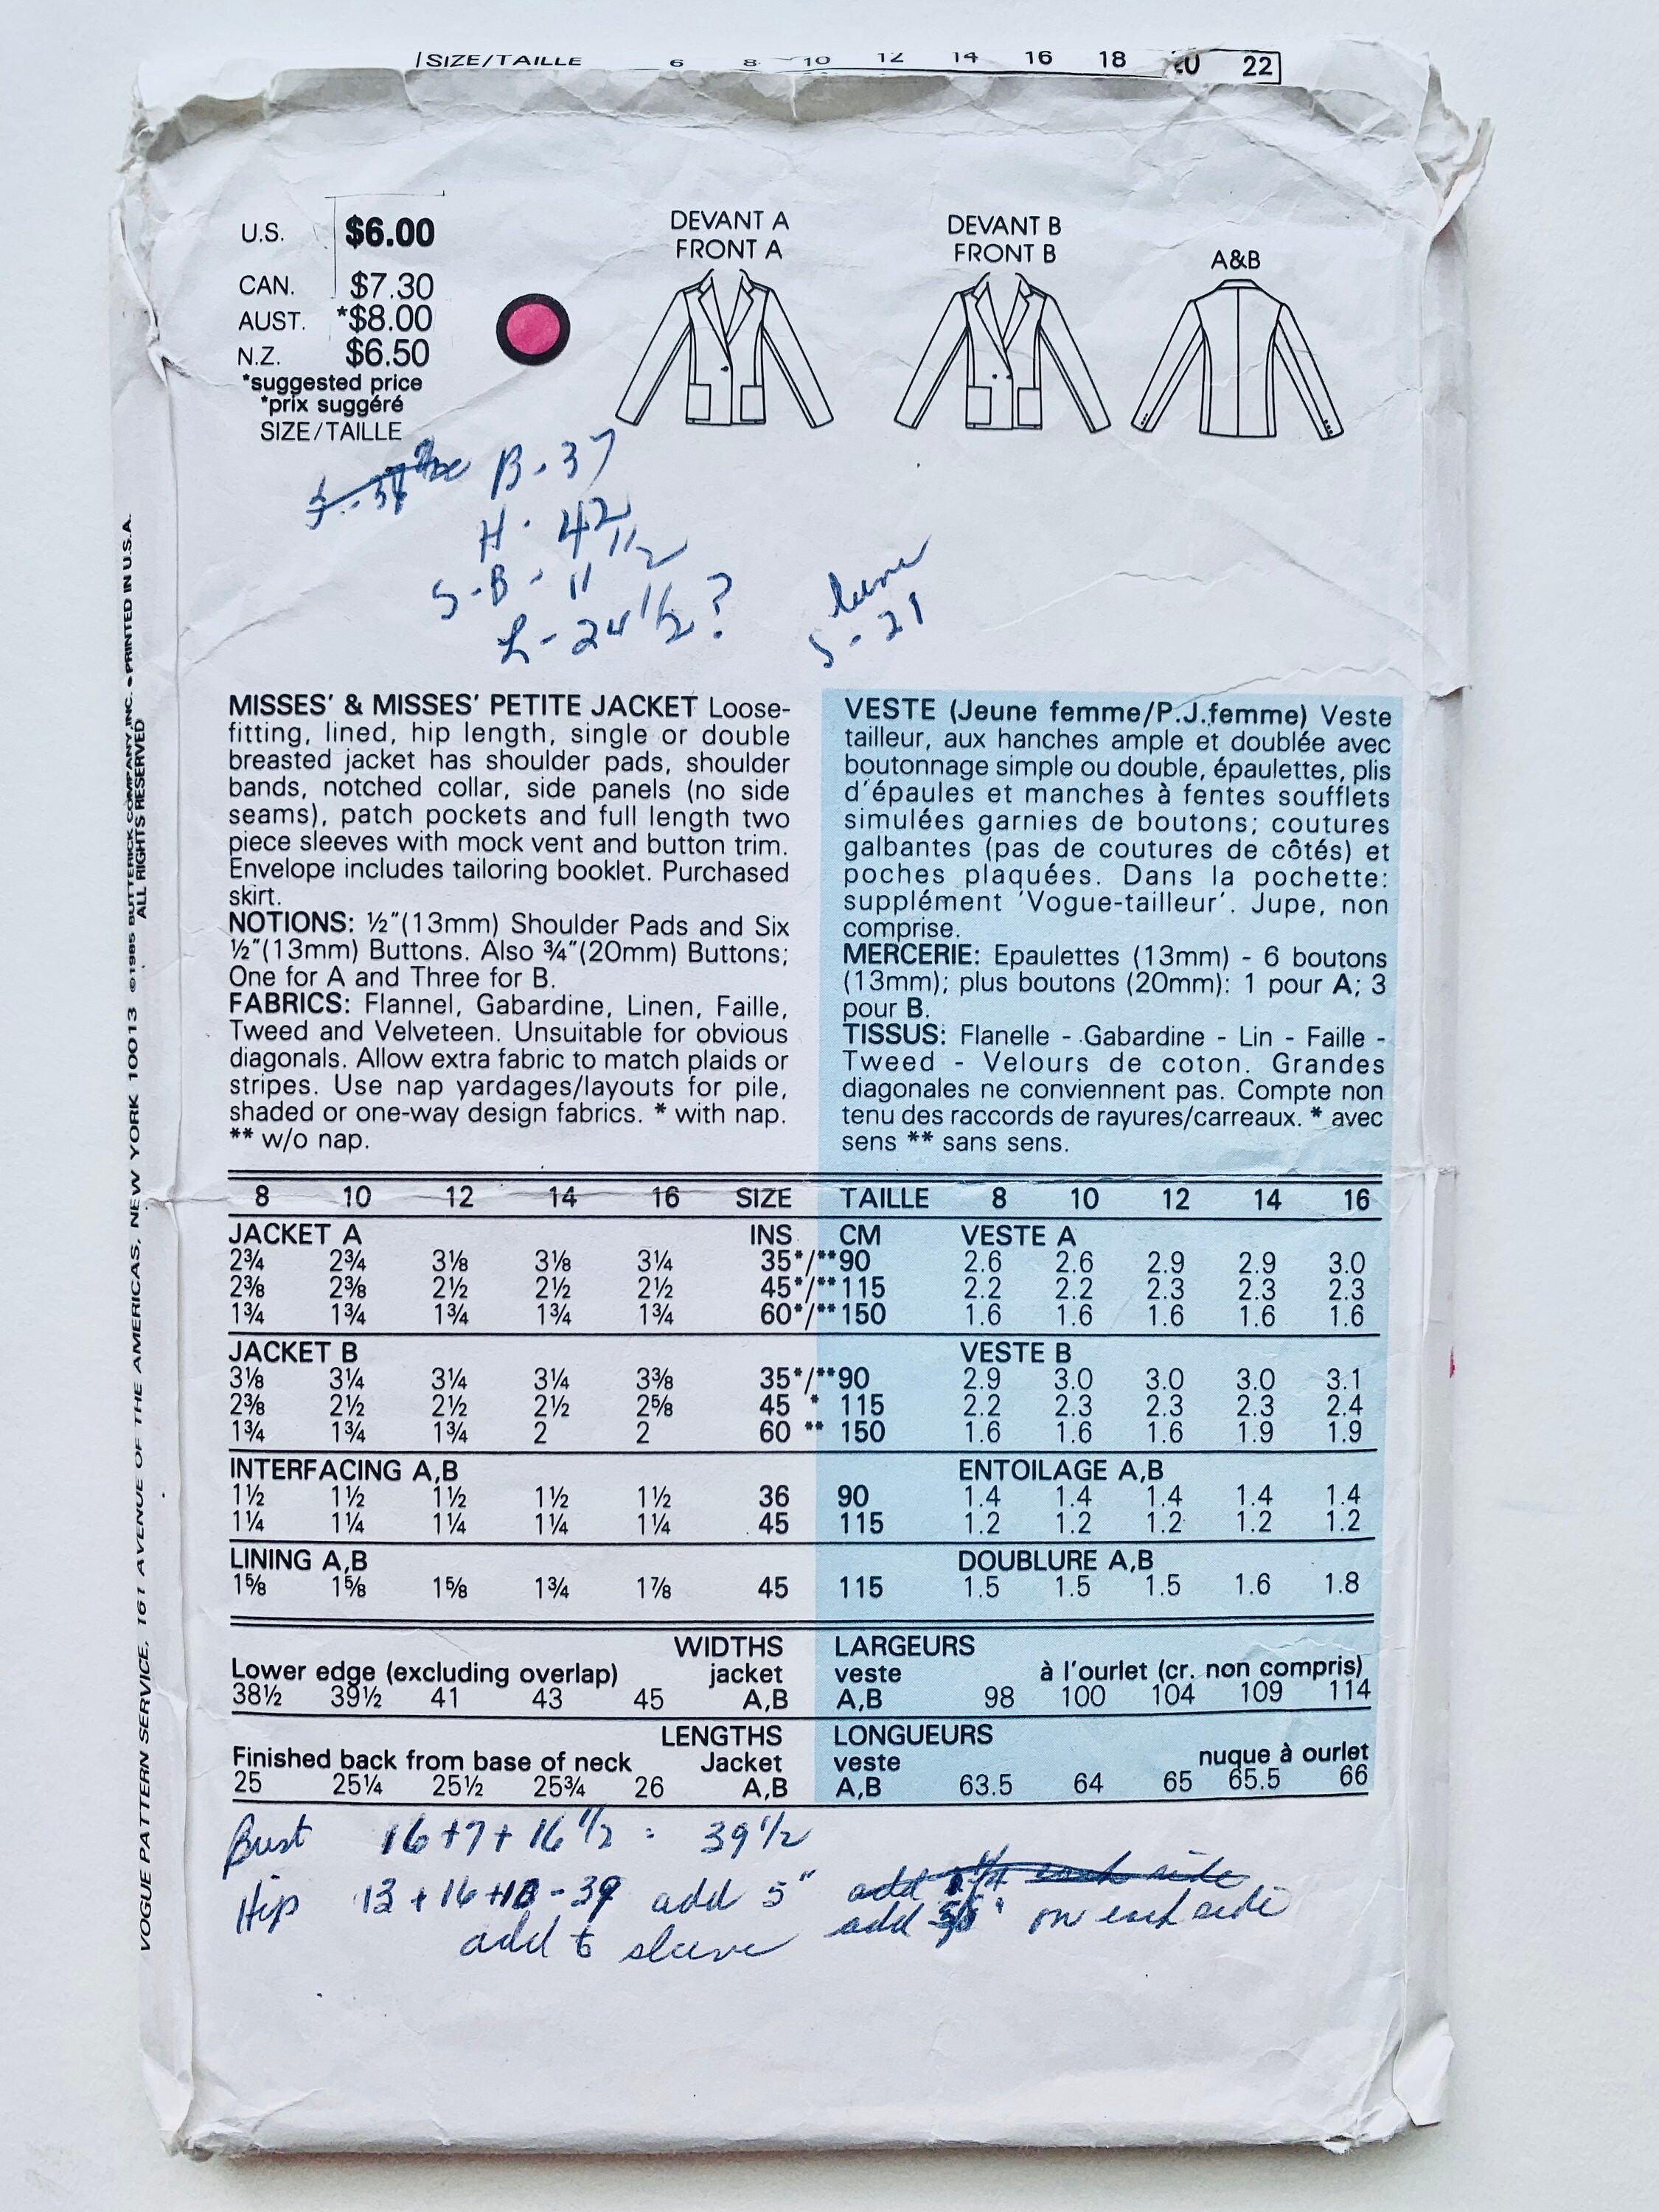 SIZE/TAILLE 6 8 10 12 14 16 18 20 22
U.S. $6.00
CAN. $7.30
AUST. *$8.00
N.Z. $6.50
*suggested price
*prix suggéré
SIZE/TAILLE
DEVANT A
FRONT A
DEVANT B
FRONT B
A&B
B - 37
H - 42
S-B - 11 1/2
L - 24 1/2 ?
S - 21
MISSES' & MISSES' PETITE JACKET Loose-
fitting, lined, hip length, single or double
breasted jacket has shoulder pads, shoulder
bands, notched collar, side panels (no side
seams), patch pockets and full length two
piece sleeves with mock vent and button trim.
Envelope includes tailoring booklet. Purchased
skirt.
NOTIONS: ½"(13mm) Shoulder Pads and Six
½"(13mm) Buttons. Also ¾"(20mm) Buttons;
One for A and Three for B.
FABRICS: Flannel, Gabardine, Linen, Faille,
Tweed and Velveteen. Unsuitable for obvious
diagonals. Allow extra fabric to match plaids or
stripes. Use nap yardages/layouts for pile,
shaded or one-way design fabrics. * with nap.
** w/o nap.
VESTE (Jeune femme/P.J.femme) Veste
tailleur, aux hanches ample et doublée avec
boutonnage simple ou double, épaulettes, plis
d'épaules et manches à fentes soufflets
simulées garnies de boutons; coutures
galbantes (pas de coutures de côtés) et
poches plaquées. Dans la pochette:
supplément 'Vogue-tailleur'. Jupe, non
comprise.
MERCERIE: Epaulettes (13mm) - 6 boutons
(13mm); plus boutons (20mm): 1 pour A; 3
pour B.
TISSUS: Flanelle - Gabardine - Lin - Faille -
Tweed - Velours de coton. Grandes
diagonales ne conviennent pas. Compte non
tenu des raccords de rayures/carreaux. * avec
sens ** sans sens.
8 10 12 14 16 SIZE TAILLE 8 10 12 14 16
JACKET A INS CM VESTE A
2¾ 2¾ 3⅛ 3⅛ 3¼ 35*/**90 2.6 2.6 2.9 2.9 3.0
2⅜ 2⅜ 2½ 2½ 2½ 45*/**115 2.2 2.2 2.3 2.3 2.3
1¾ 1¾ 1¾ 1¾ 1¾ 60*/**150 1.6 1.6 1.6 1.6 1.6
JACKET B VESTE B
3⅛ 3¼ 3¼ 3¼ 3⅜ 35*/**90 2.9 3.0 3.0 3.0 3.1
2⅜ 2½ 2½ 2½ 2⅝ 45 * 115 2.2 2.3 2.3 2.3 2.4
1¾ 1¾ 1¾ 2 2 60 ** 150 1.6 1.6 1.6 1.9 1.9
INTERFACING A,B ENTOILAGE A,B
1½ 1½ 1½ 1½ 1½ 36 90 1.4 1.4 1.4 1.4 1.4
1¼ 1¼ 1¼ 1¼ 1¼ 45 115 1.2 1.2 1.2 1.2 1.2
LINING A,B DOUBLURE A,B
1⅝ 1⅝ 1⅝ 1¾ 1⅞ 45 115 1.5 1.5 1.5 1.6 1.8
WIDTHS LARGEURS
Lower edge (excluding overlap) jacket veste à l'ourlet (cr. non compris)
38½ 39½ 41 43 45 A,B A,B 98 100 104 109 114
LENGTHS LONGUEURS
Finished back from base of neck Jacket veste nuque à ourlet
25 25¼ 25½ 25¾ 26 A,B A,B 63.5 64 65 65.5 66
Bust 16+7+16 1/2 = 39 1/2
Hip 13 + 16 +10 - 39 add 5" add each side
add on each side
add to sleeve
VOGUE PATTERN SERVICE, 161 AVENUE OF THE AMERICAS, NEW YORK 10013 ©1985 BUTTERICK COMPANY, INC. • PRINTED IN U.S.A.
ALL RIGHTS RESERVED